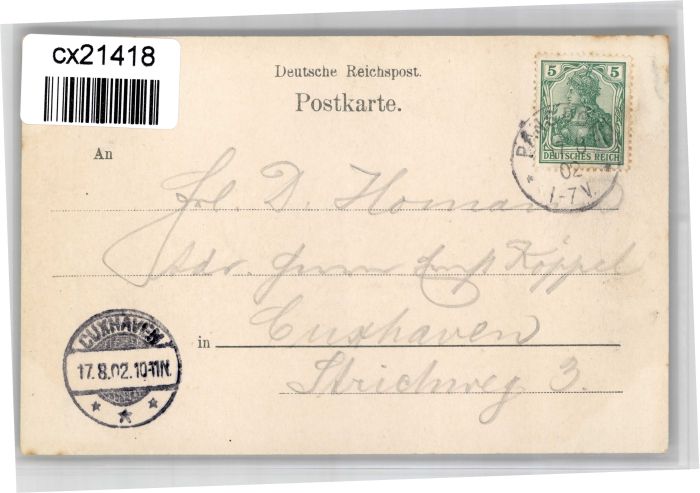 cx21418
Deutsche Reichspost.
Postkarte.
5 5
DEUTSCHES REICH
02
1.-7V.
An
Frl. D. Homann
Adr. Herrn Ernst Köppel
in Cuxhaven
Strichweg 3.
CUXHAVEN
17.8.02.10-11N.